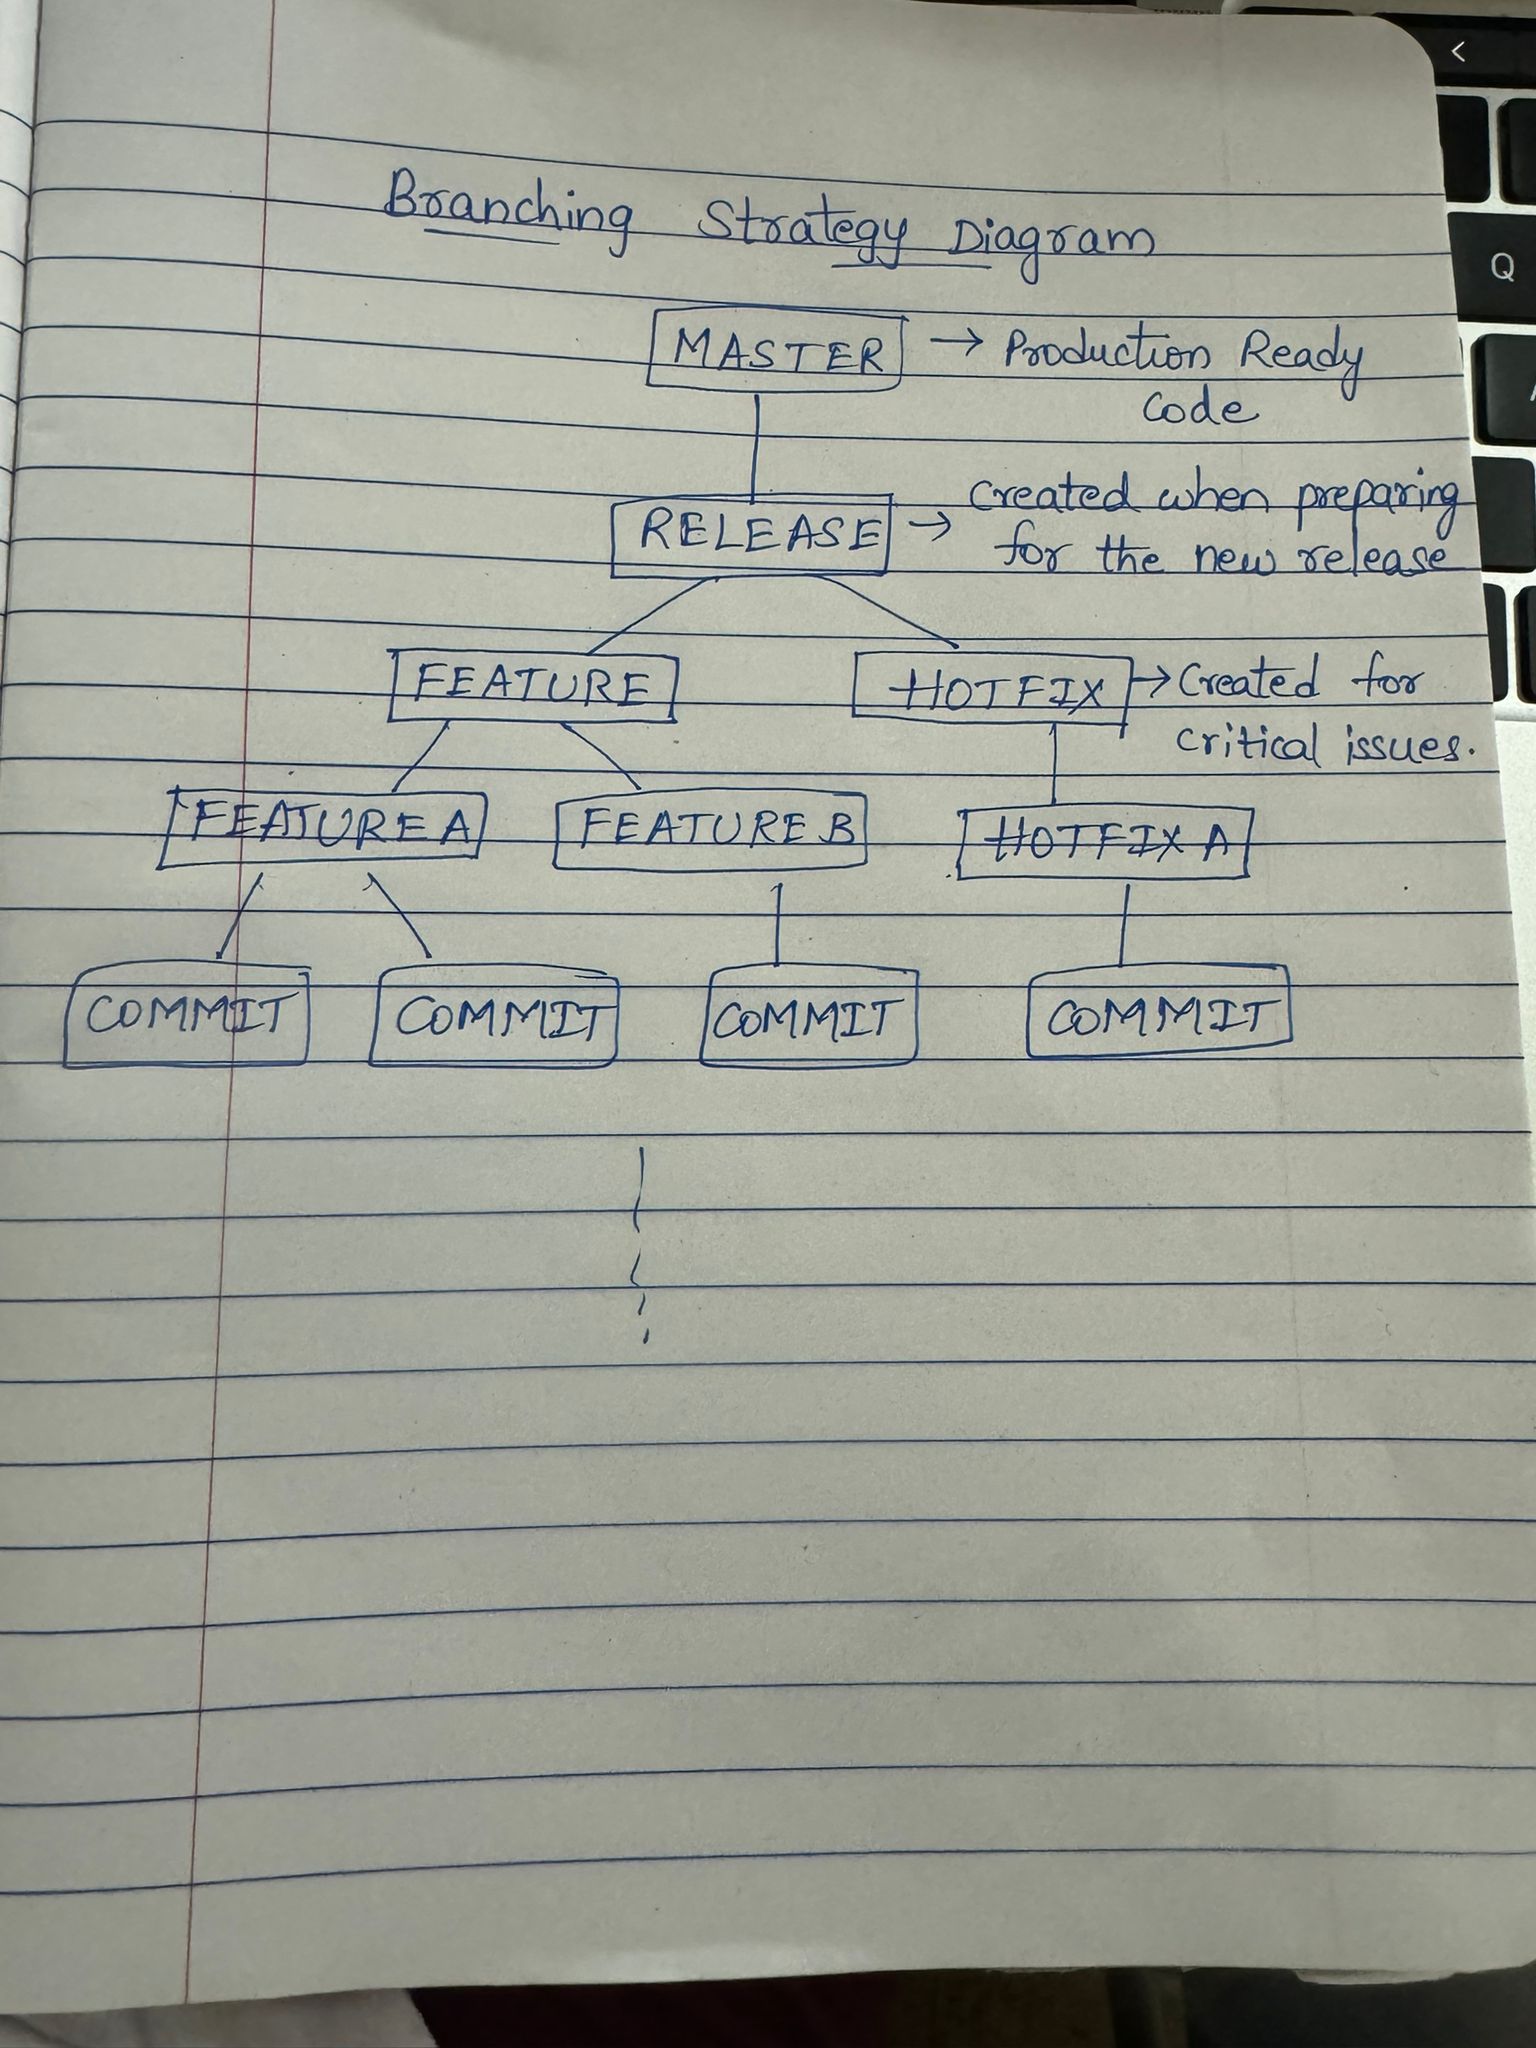 Branching Strategy Diagram
MASTER → Production Ready
Code
RELEASE → Created when preparing
for the new release
FEATURE HOTFIX → Created for
critical issues.
FEATURE A FEATURE B HOTFIX A
COMMIT COMMIT COMMIT COMMIT
<
Q